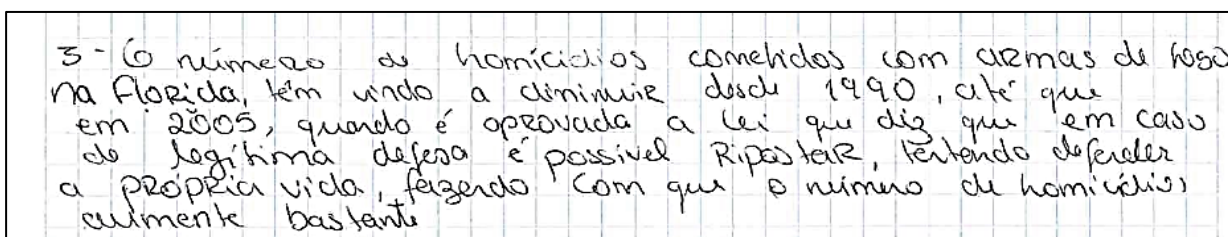 3 - O número de homicídios cometidos com armas de fogo
na Florida, têm vindo a diminuir desde 1990, até que
em 2005, quando é aprovada a lei que diz que em caso
de legítima defesa é possivel Ripostar, tentando defender
a própria vida, fazendo com que o número de homicídios
aumente bastante